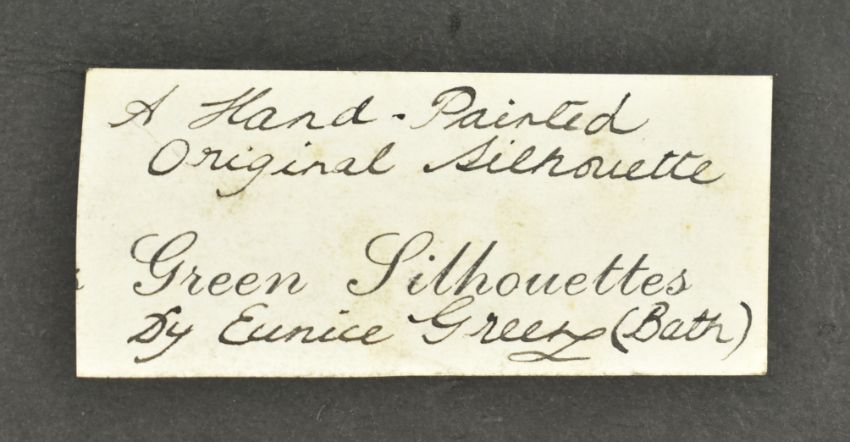 A Hand-Painted
Original Silhouette
Green Silhouettes
By Eunice Green (Bath)